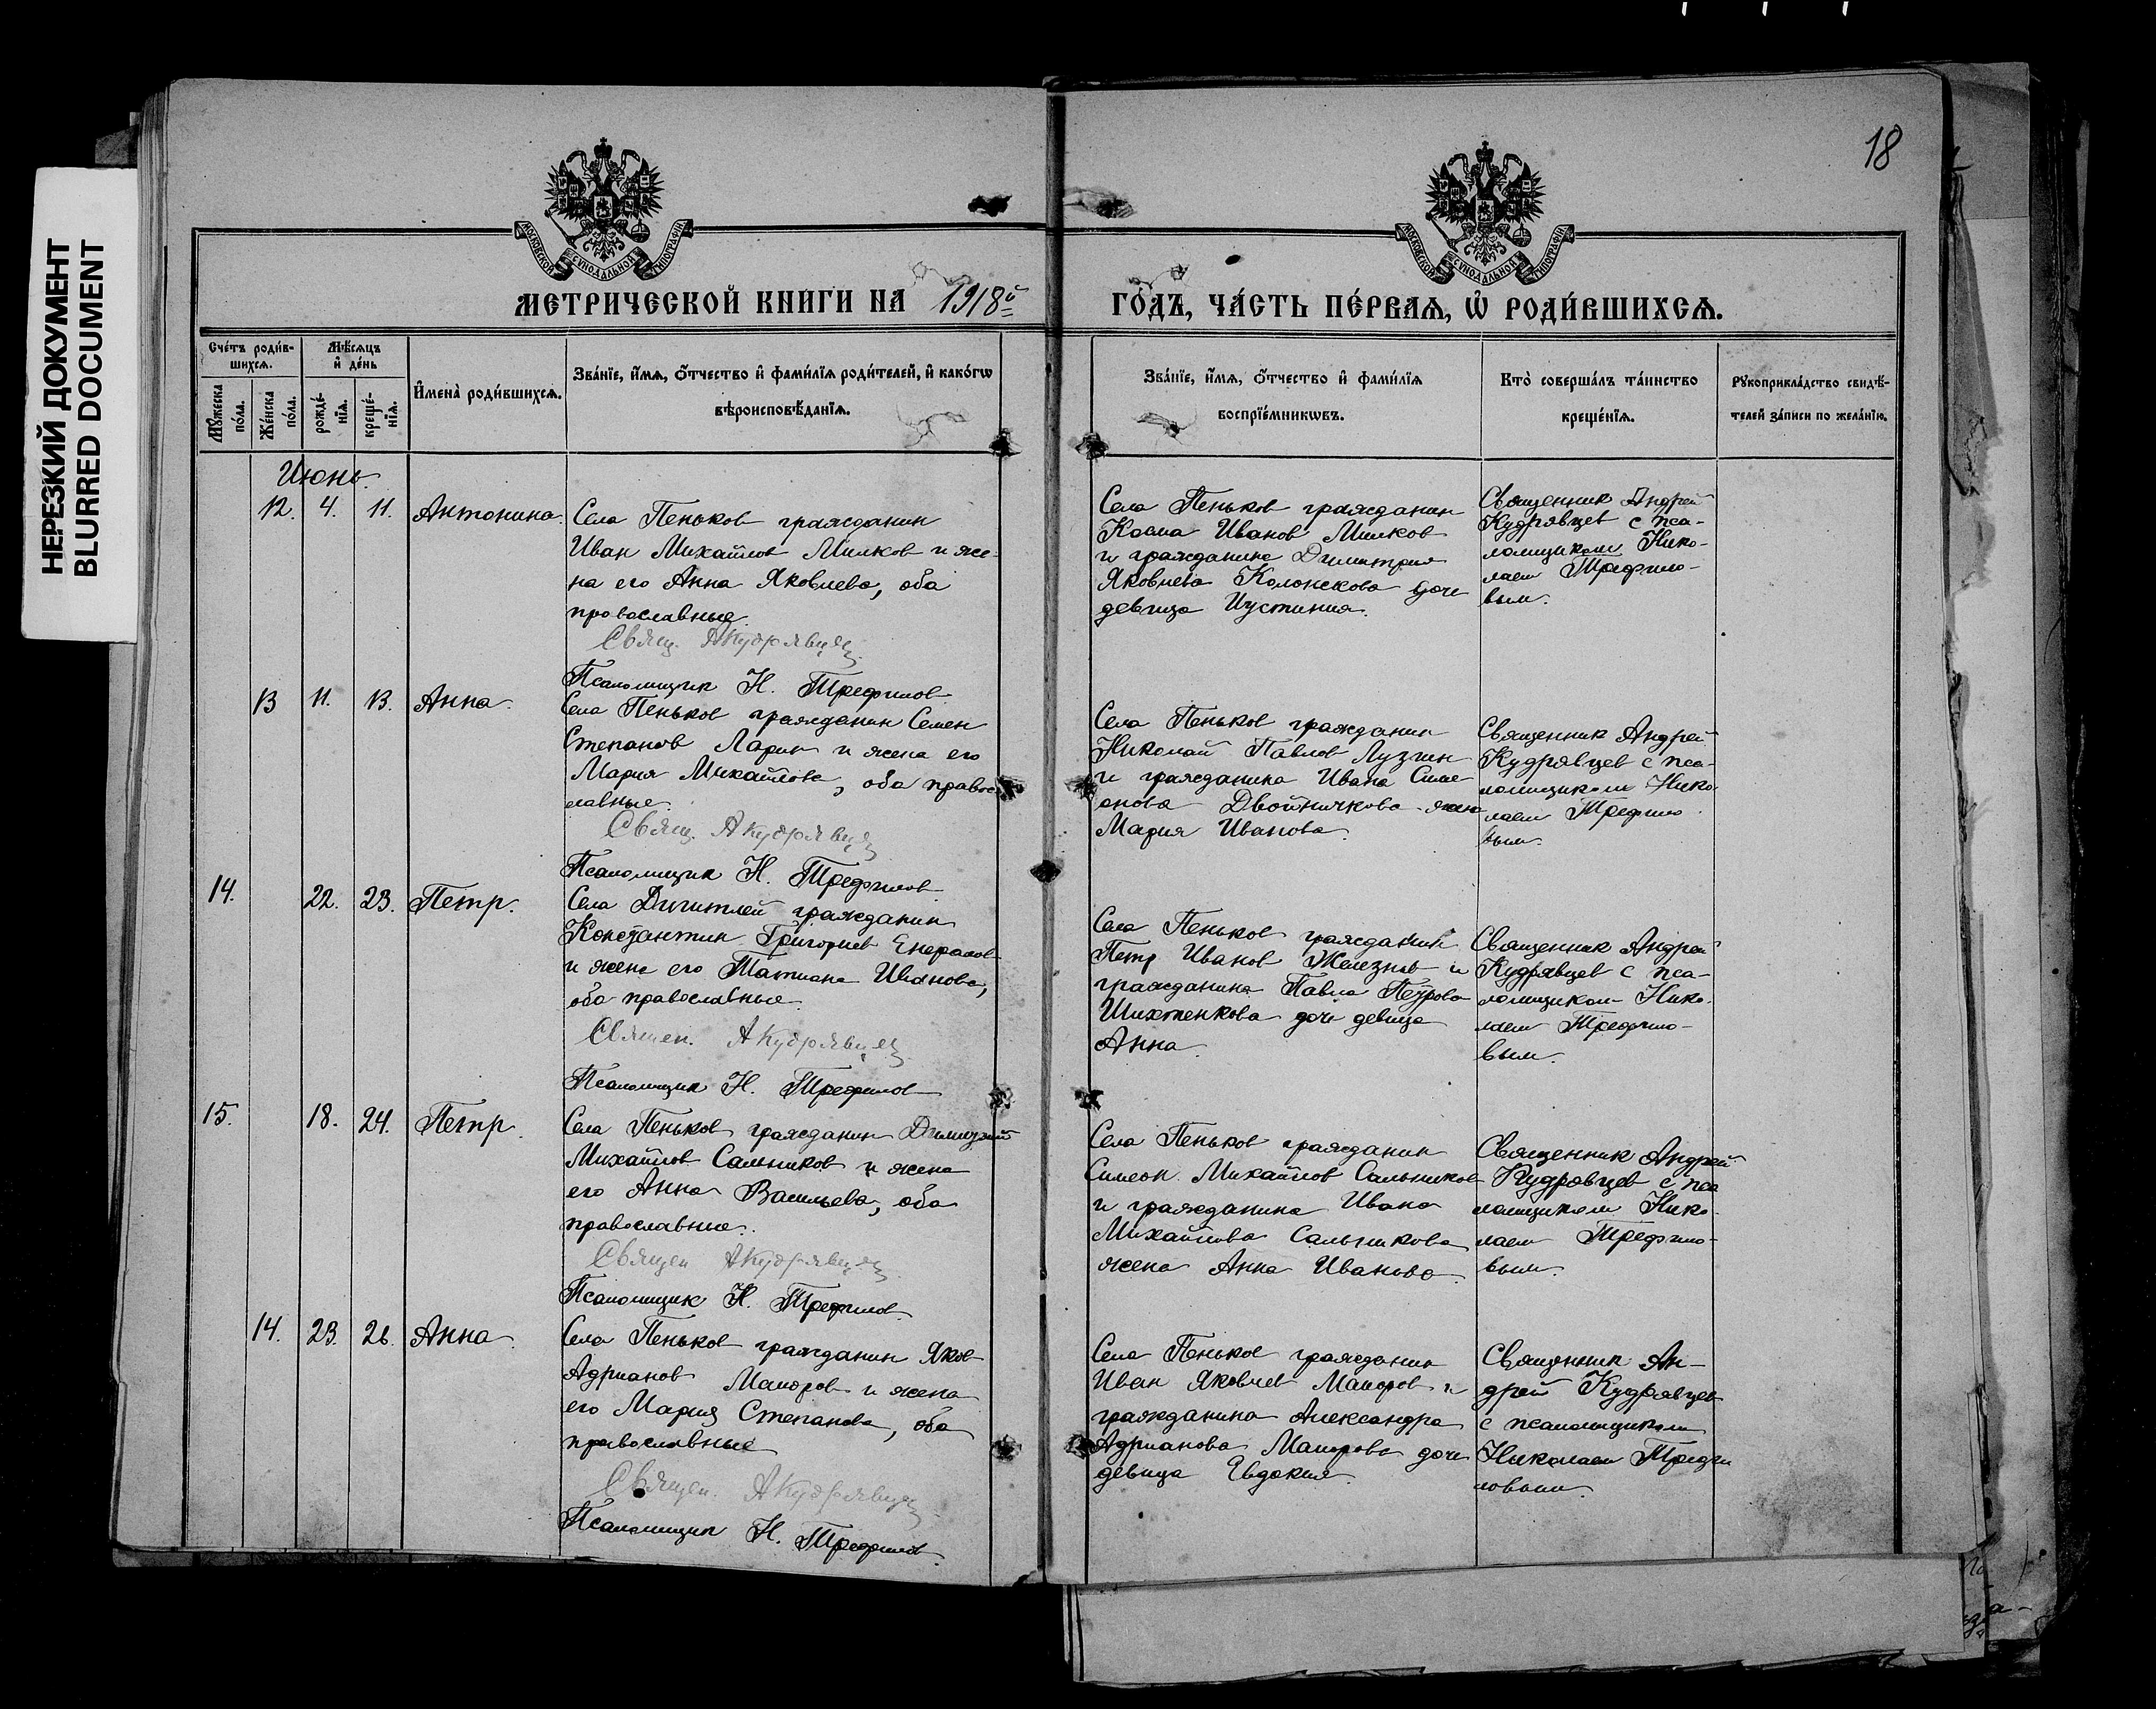 НЕРЕЗКИЙ ДОКУМЕНТ
BLURRED DOCUMENT
18
МОСКОВСКОЙ СУНОДАЛЬНОЙ ТИПОГРАФІИ
МОСКОВСКОЙ СУНОДАЛЬНОЙ ТИПОГРАФІИ
МЕТРИЧЕСКОЙ КНИГИ НА 1918й
ГО́ДЪ, ЧА́СТЬ ПЕ́РВАѦ, Ѡ҆ РОДИ́ВШИХСѦ.
Сче́тъ роди́в-
шихсѧ.
Мѹ́жеска
по́ла.
Же́нска
по́ла.
Мѣ́сѧцъ
и҆ де́нь
рожде́-
нїѧ.
креще́-
нїѧ.
И҆мена̀ роди́вшихсѧ.
Зва́нїе, и҆́мѧ, ѻ҆́тчество и҆ фами́лїѧ роди́телей, и҆ како́гѡ
вѣроисповѣ́данїѧ.
Зва́нїе, и҆́мѧ, ѻ҆́тчество и҆ фами́лїѧ
воспрїе́мникѡвъ.
Кто̀ соверша́лъ та́инство
креще́нїѧ.
Рѹкоприкла́дство свидѣ́-
телей за́писи по жела́нїю.
Июнь.
12. 4. 11. Антонина.
Села Пеньков гражданин
Иван Михайлов Милков и же-
на его Анна Яковлева, оба
православные.
Свящ. АКудрявцев
Псаломщик Н. Трефилов
Села Пеньков гражданин
Косма Иванов Милков
и гражданина Димитрия
Яковлева Колонскова дочь
девица Иустиния.
Священник Андрей
Кудрявцев с пса-
ломщиком Нико-
лаем Трефило-
вым.
13 11. 13. Анна.
Села Пеньков гражданин Семен
Степанов Ларин и жена его
Мария Михайлова, оба правос-
лавные.
Свящ. АКудрявцев
Псаломщик Н. Трефилов
Села Пеньков гражданин
Николай Павлов Лузгин
и гражданина Ивана Симе-
онова Двойничкова жена
Мария Иванова.
Священник Андрей
Кудрявцев с пса-
ломщиком Нико-
лаем Трефило-
вым.
14. 22. 23. Петр.
Села Дигитлей гражданин
Константин Григориев Енералов
и жена его Татиана Иванова,
оба православные.
Священ. АКудрявцев
Псаломщик Н. Трефилов
Села Пеньков гражданин
Петр Иванов Железнов и
гражданина Павла Петрова
Шихтенкова дочь девица
Анна.
Священник Андрей
Кудрявцев с пса-
ломщиком Нико-
лаем Трефило-
вым.
15. 18. 24. Петр.
Села Пеньков гражданин Димитрий
Михайлов Сальников и жена
его Анна Васильева, оба
православные.
Священ АКудрявцев
Псаломщик Н. Трефилов.
Села Пеньков гражданин
Симеон Михайлов Сальников
и гражданина Ивана
Михайлова Сальникова
жена Анна Иванова.
Священник Андрей
Кудрявцев с пса
ломщиком Нико-
лаем Трефило-
вым.
14. 23. 26. Анна.
Села Пеньков гражданин Яков
Адрианов Маиоров и жена
его Мария Степанова, оба
православные
Священ. АКудрявцев
Псаломщик Н. Трефилов.
Села Пеньков гражданин
Иван Яковлев Маиоров и
гражданина Александра
Адрианова Маиорова дочь
девица Евдокия.
Священник Ан-
дрей Кудрявцев
с псаломщиком
Николаем Трефи
ловым.